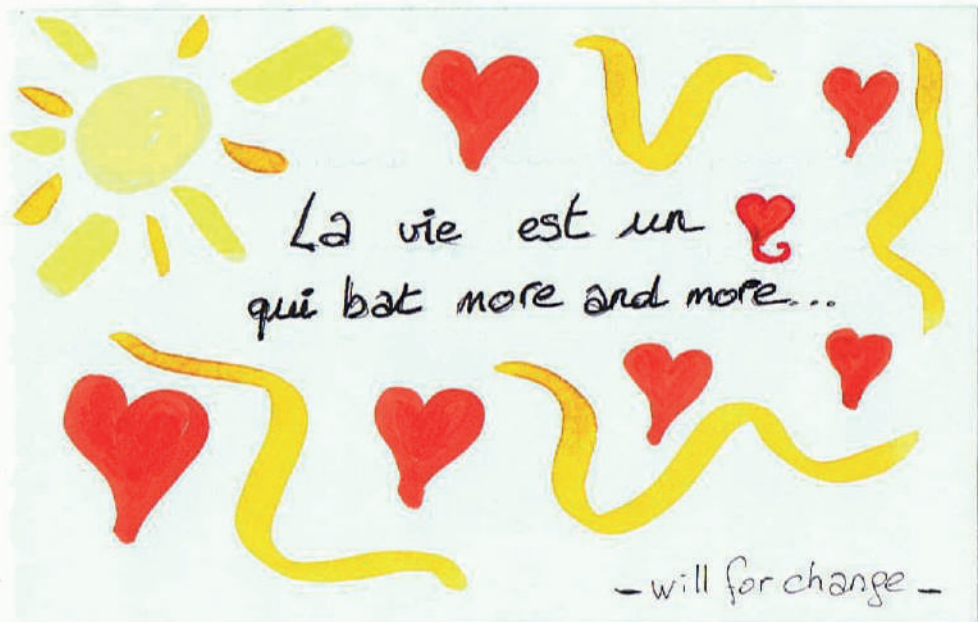 La vie est un
qui bat more and more...
- will for change -